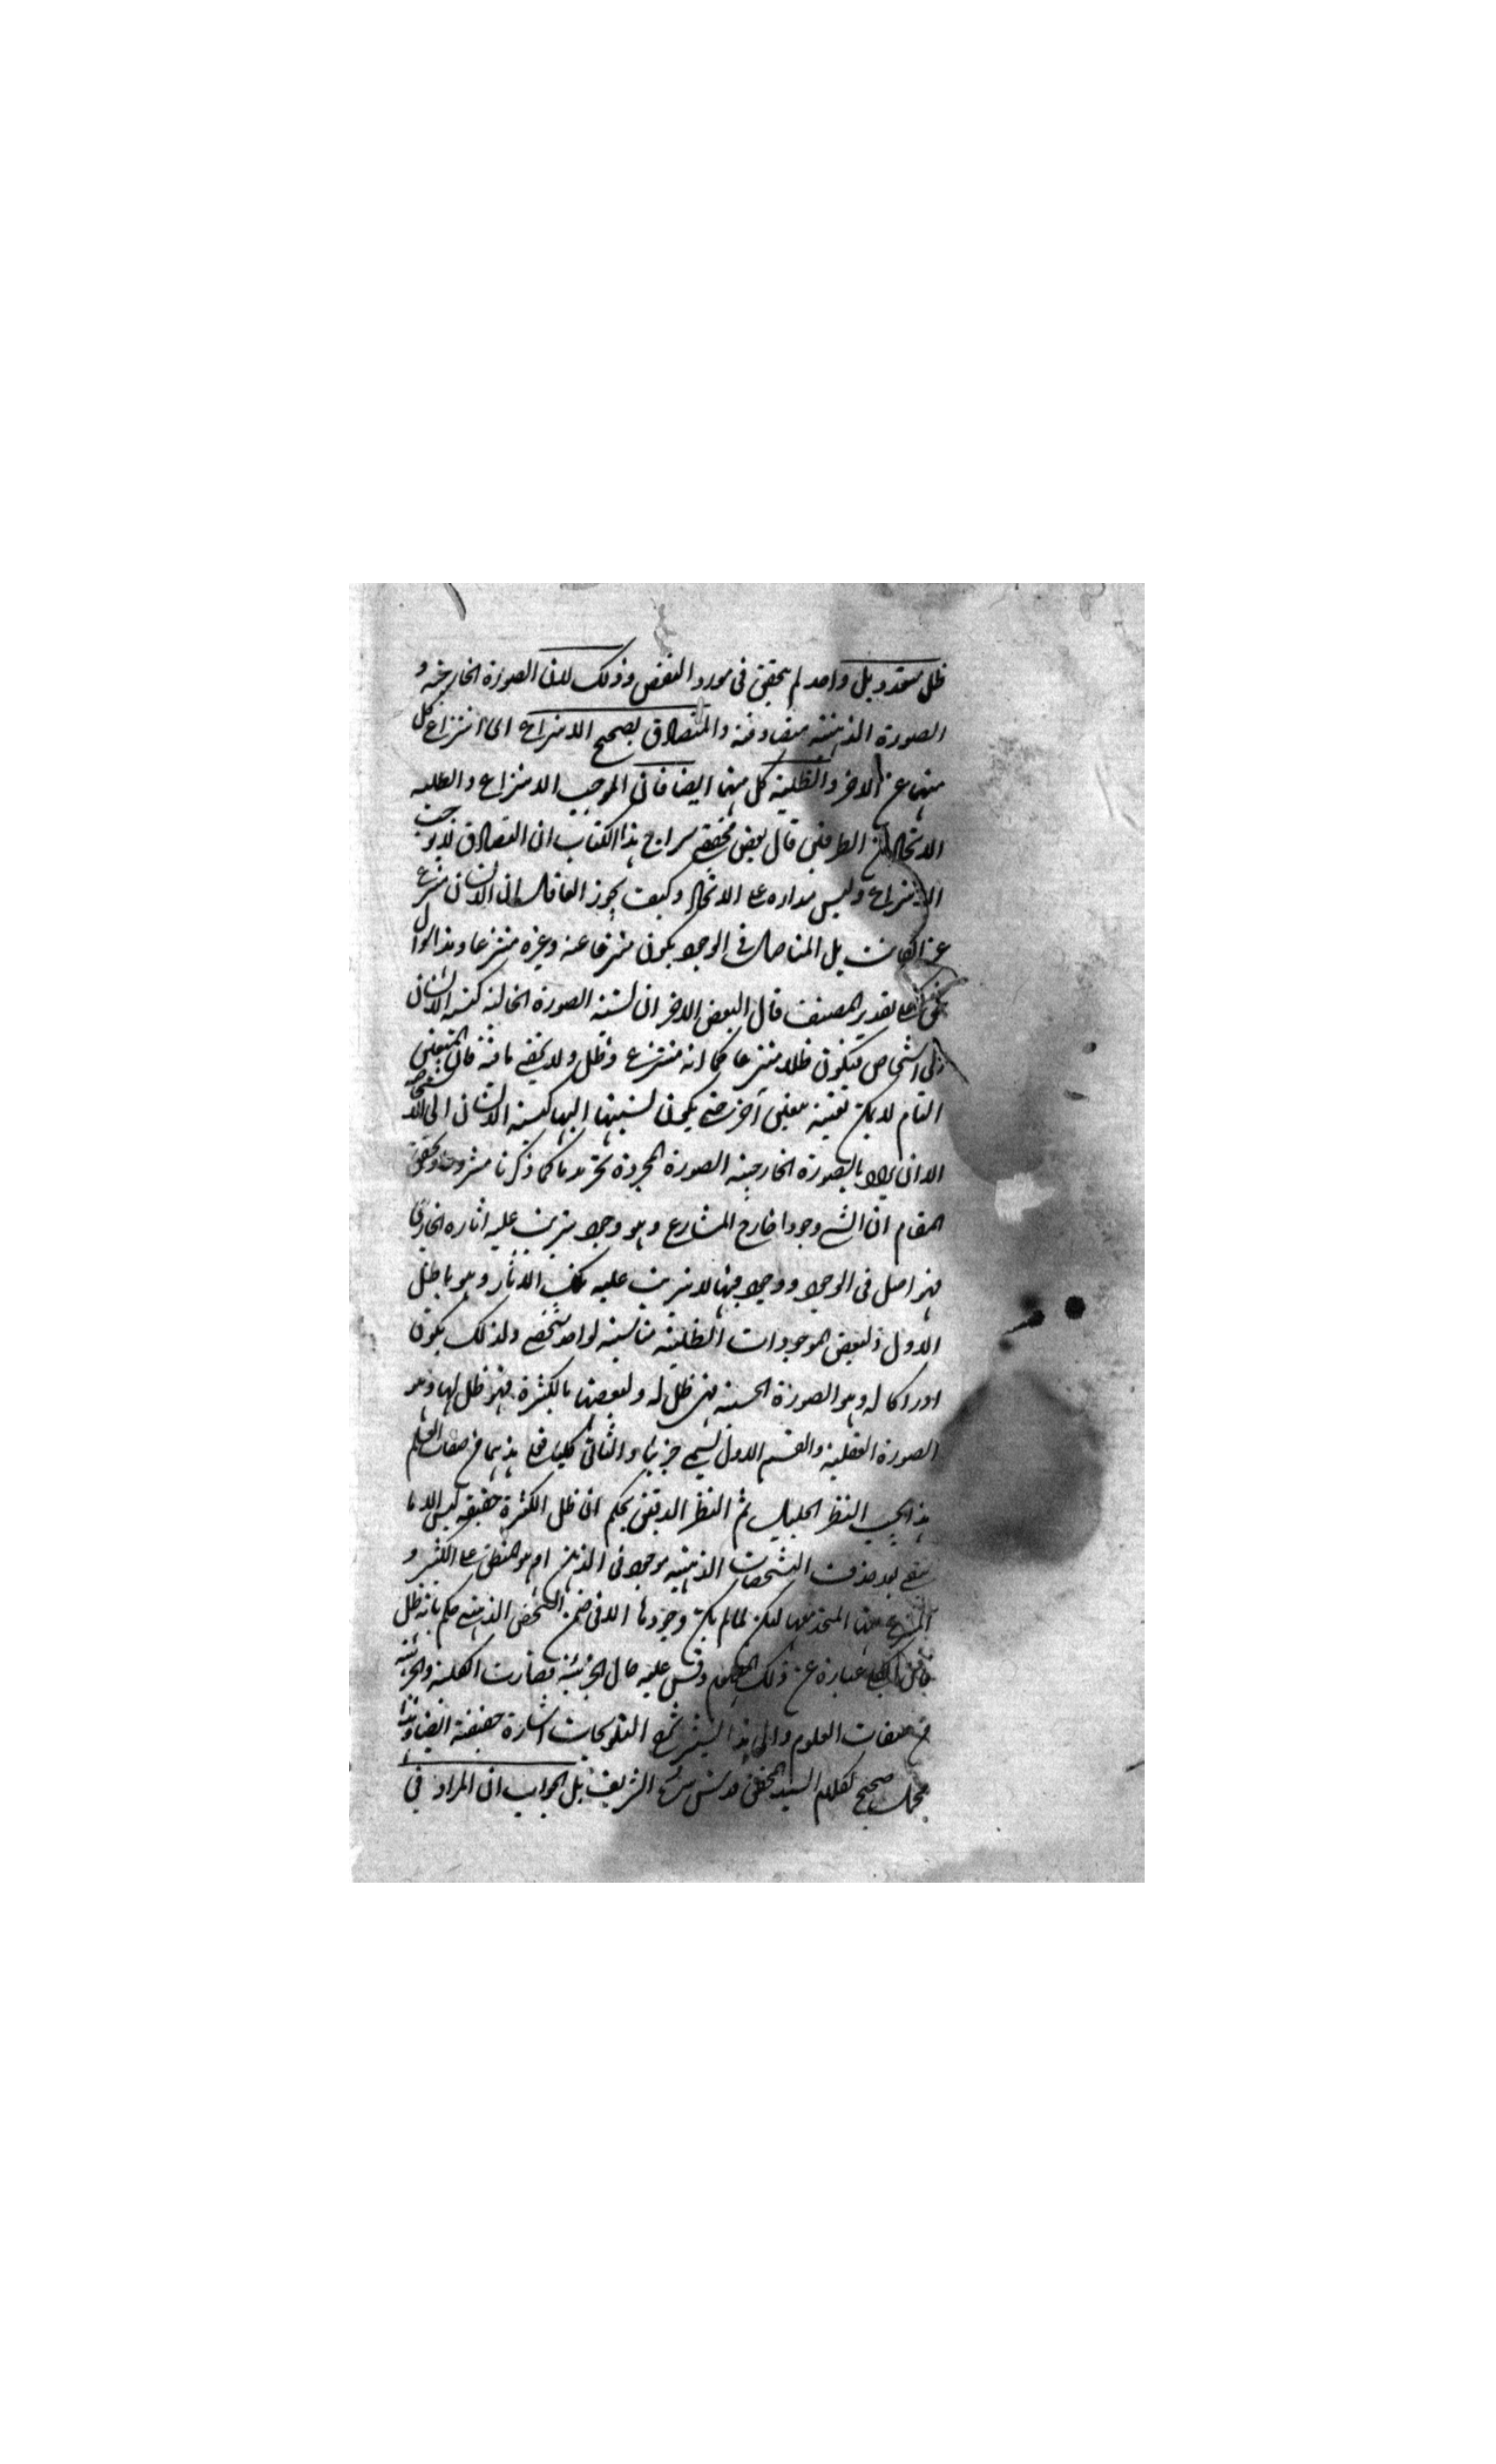 ظل متعدد بل واحد لم يتحقق فى مورد النقض وذلك لان الصورة الخارجية و
الصورة الذهنية متصادقة والتصادق يصحح الانتزاع اى انتزاع كل
منهما عن الاخر والظلية كل منهما ايضا فان الموجب الانتزاع والظلية
الاتحاد الطرفين قال بعض محققى سراج هذا الكتاب ان التصادق لا يوجب
الانتزاع وليس مداره على الاتحاد وكيف يجوز العاقل ان الانسان منتزع
عن الكاتب بل المتاصل فى الوجود يكون منتزعا عنه وغيره منتزعا وهذا
على تقدير المصنف قال البعض الاخر ان نسبة الصورة الخالية كنسبة الانسان
الى اشخاص فيكون ظلا منتزعا كما انه منتزع وظل ولا يخفى ما فيه فان المتعين
التام لا يمكن تعينه بتعين آخر حتى يكون نسبتها اليها كنسبة الانسان الى الاشخاص
الا ان يراد بالصورة الخارجية الصورة المجردة كما ذكرنا مشروحا وتحقيق
المقام ان للشى وجودا خارج المشاعر وهو وجود يترتب عليه اثاره الخارجى
فهو اصل فى الوجود ووجود فيها لا يترتب عليه تلك الاثار وهو باظل
الاول فلبعض الموجودات الظلية مناسبة لواحد شخصى ولذلك يكون
ادراكا له وهو الصورة الحسية فهى ظل له ولبعضها بالكثرة فهو ظل لها وهو
الصورة العقلية والقسم الاول يسمى جزئيا والثانى كليا فعلى هذا هما من صفات العلم
هذا بحسب النظر الجليل ثم النظر الدقيق يحكم ان ظل الكثرة حقيقة ليس الا ما
يبقى بعد حذف التشخصات الذهنية موجود فى الذهن ام هو المنطبق على الكثير و
المنتزع عنها المتحد معها لكن لما لم يكن وجودها الا فى ضمن الشخص الذهنى حكم بانه ظل
عبارة عن ذلك وقس عليه حال الجزئية فصارت الكلية والجزئية
من صفات العلوم والى هذا يشير شرح التلويحات اشارة حقيقة ايضا وهذا
محمل صحيح لكلام السيد المحقق قدس سره الشريف بل الجواب ان المراد فى